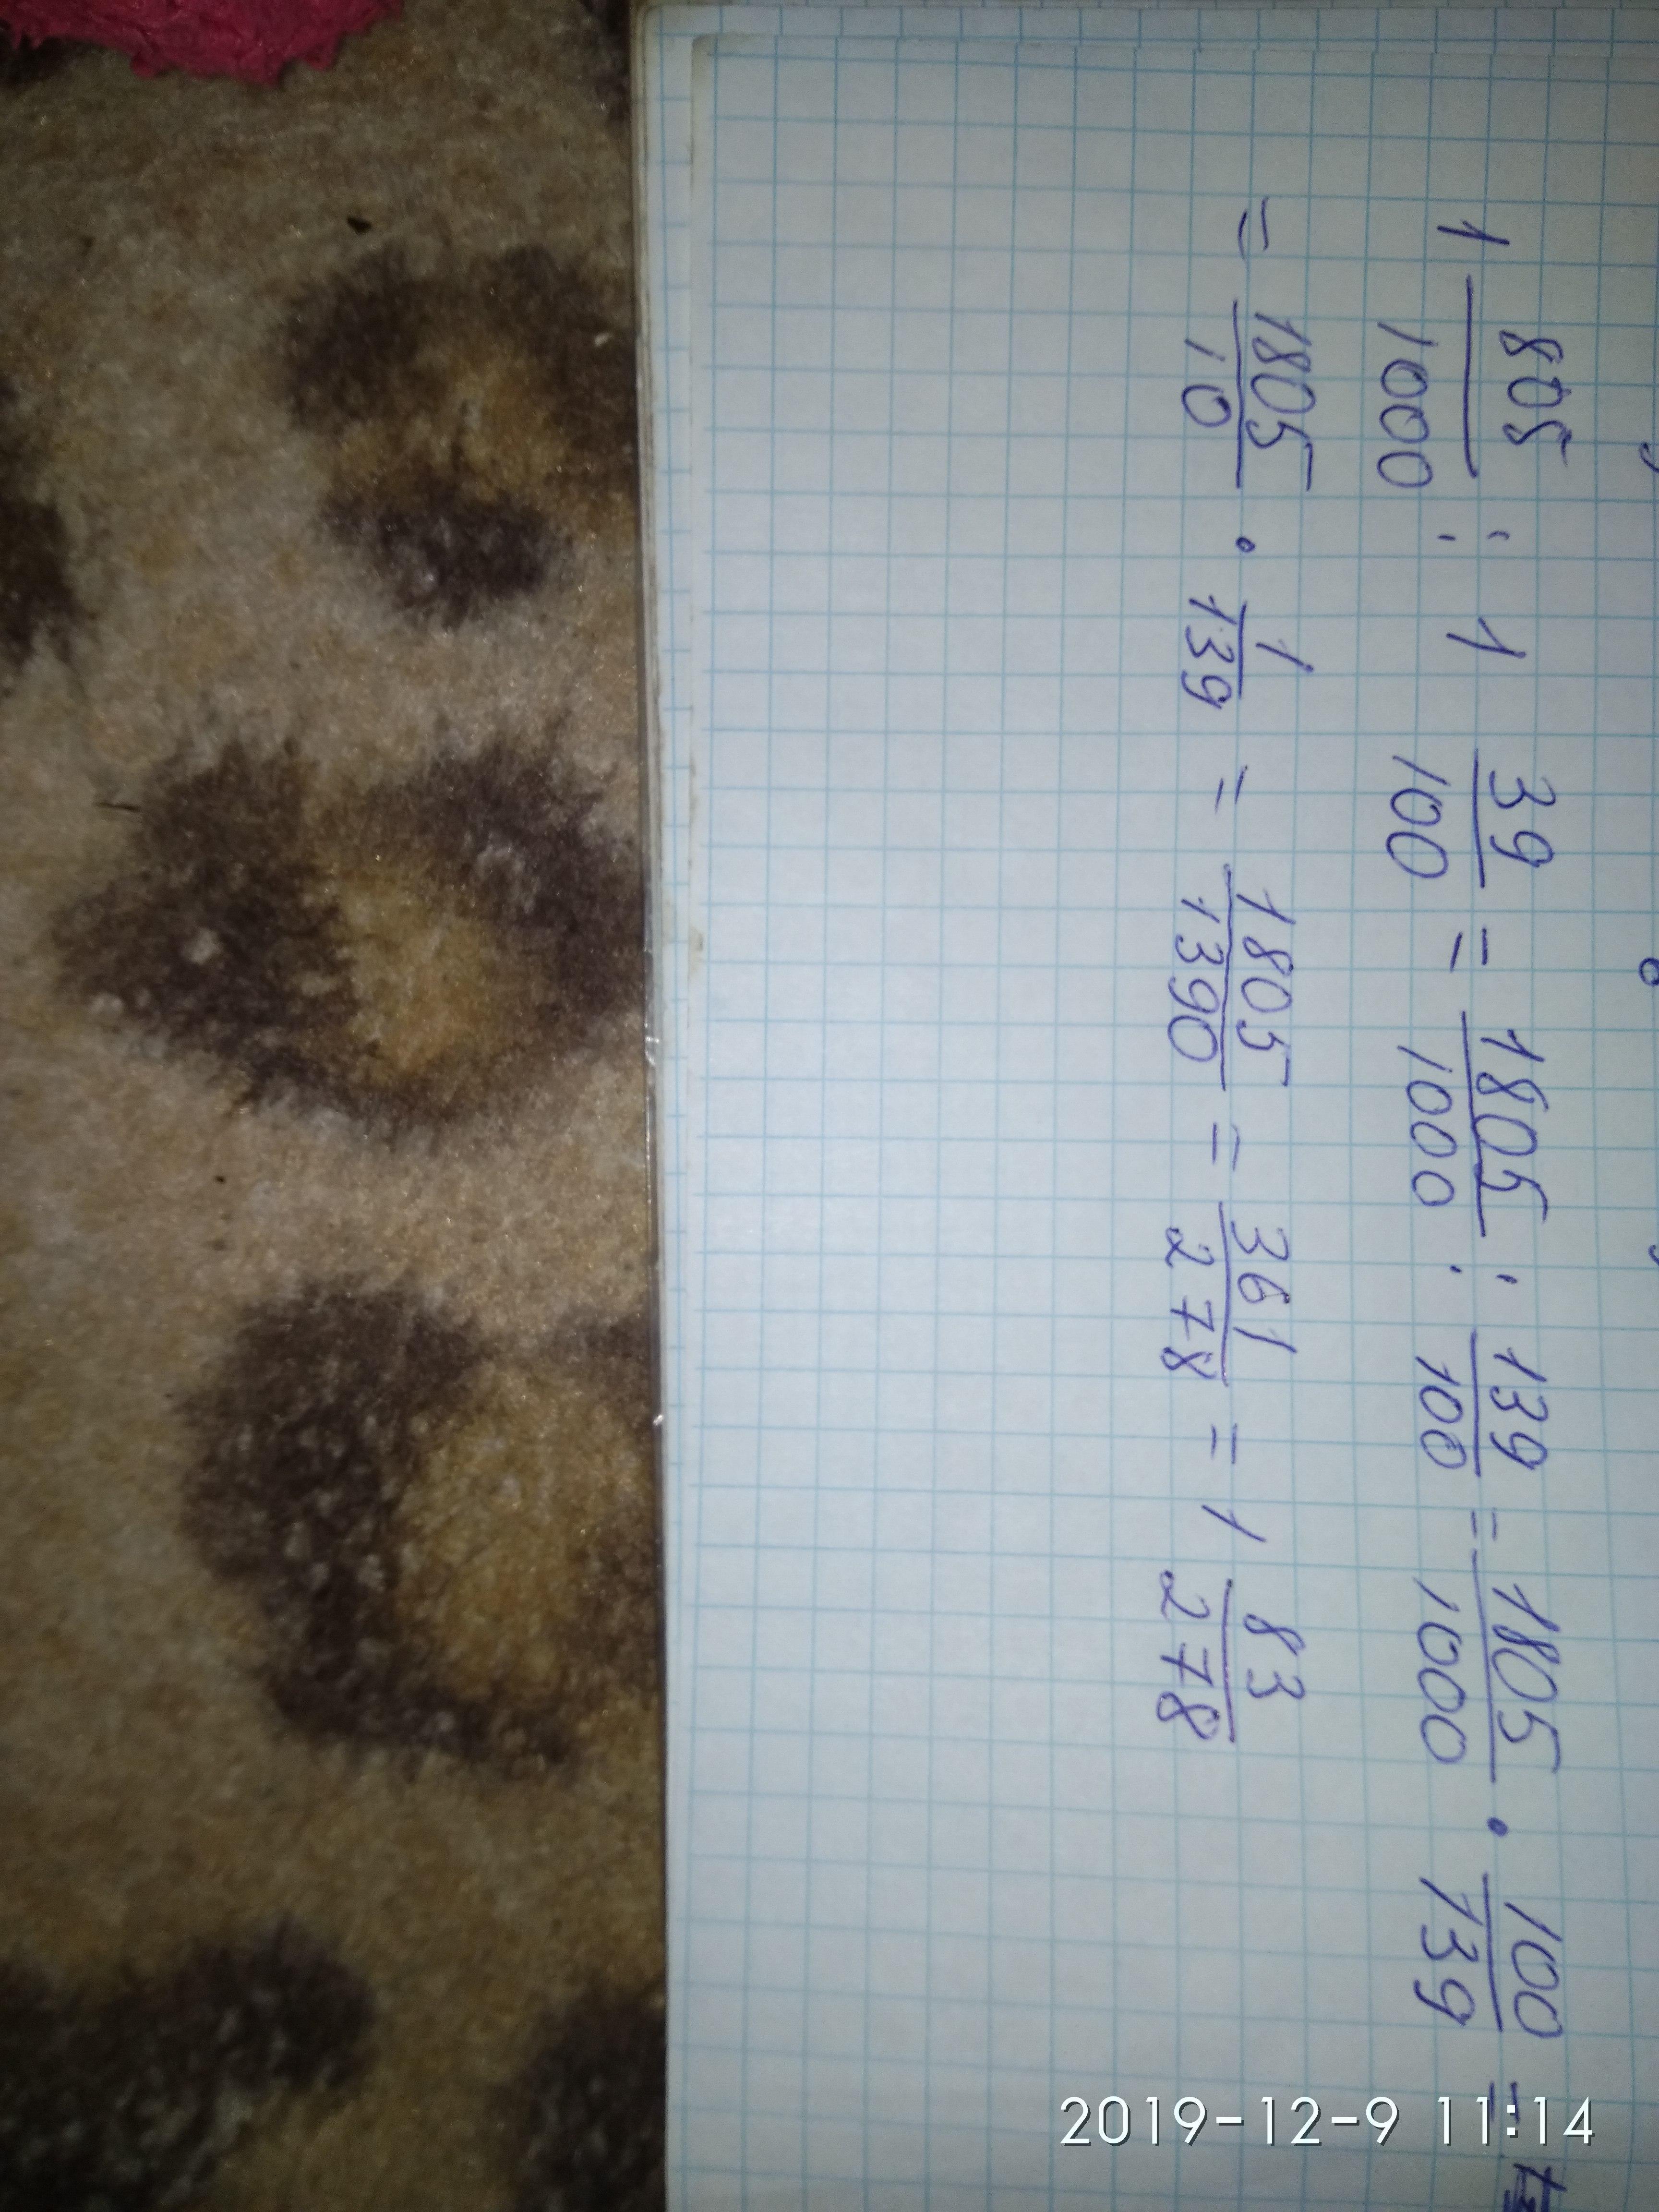 1 805/1000 : 1 39/100 = 1805/1000 : 139/100 = 1805/1000 · 100/139 =
= 1805/10 · 1/139 = 1805/1390 = 361/278 = 1 83/278
2019-12-9 11:14